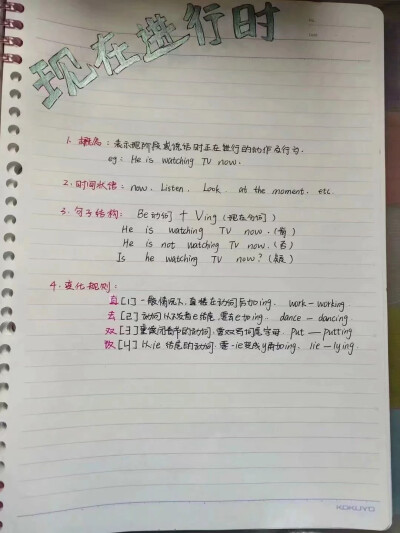 现在进行时
1. 概念：表示现阶段或说话时正在进行的动作及行为.
eg: He is watching TV now.
2. 时间状语：now. Listen. Look. at the moment. etc.
3. 句子结构：Be动词 + Ving (现在分词)
He is watching TV now. (肯)
He is not watching TV now. (否)
Is he watching TV now? (疑)
4. 变化规则：
直 [1] 一般情况下，直接在动词后加ing. work — working
去 [2] 动词以不发音e结尾，去e加ing. dance — dancing
双 [3] 重读闭音节的动词，要双写词尾字母. put — putting
[4] 以ie结尾的动词，要-ie变成y再加ing. lie — lying.
KOKUYO